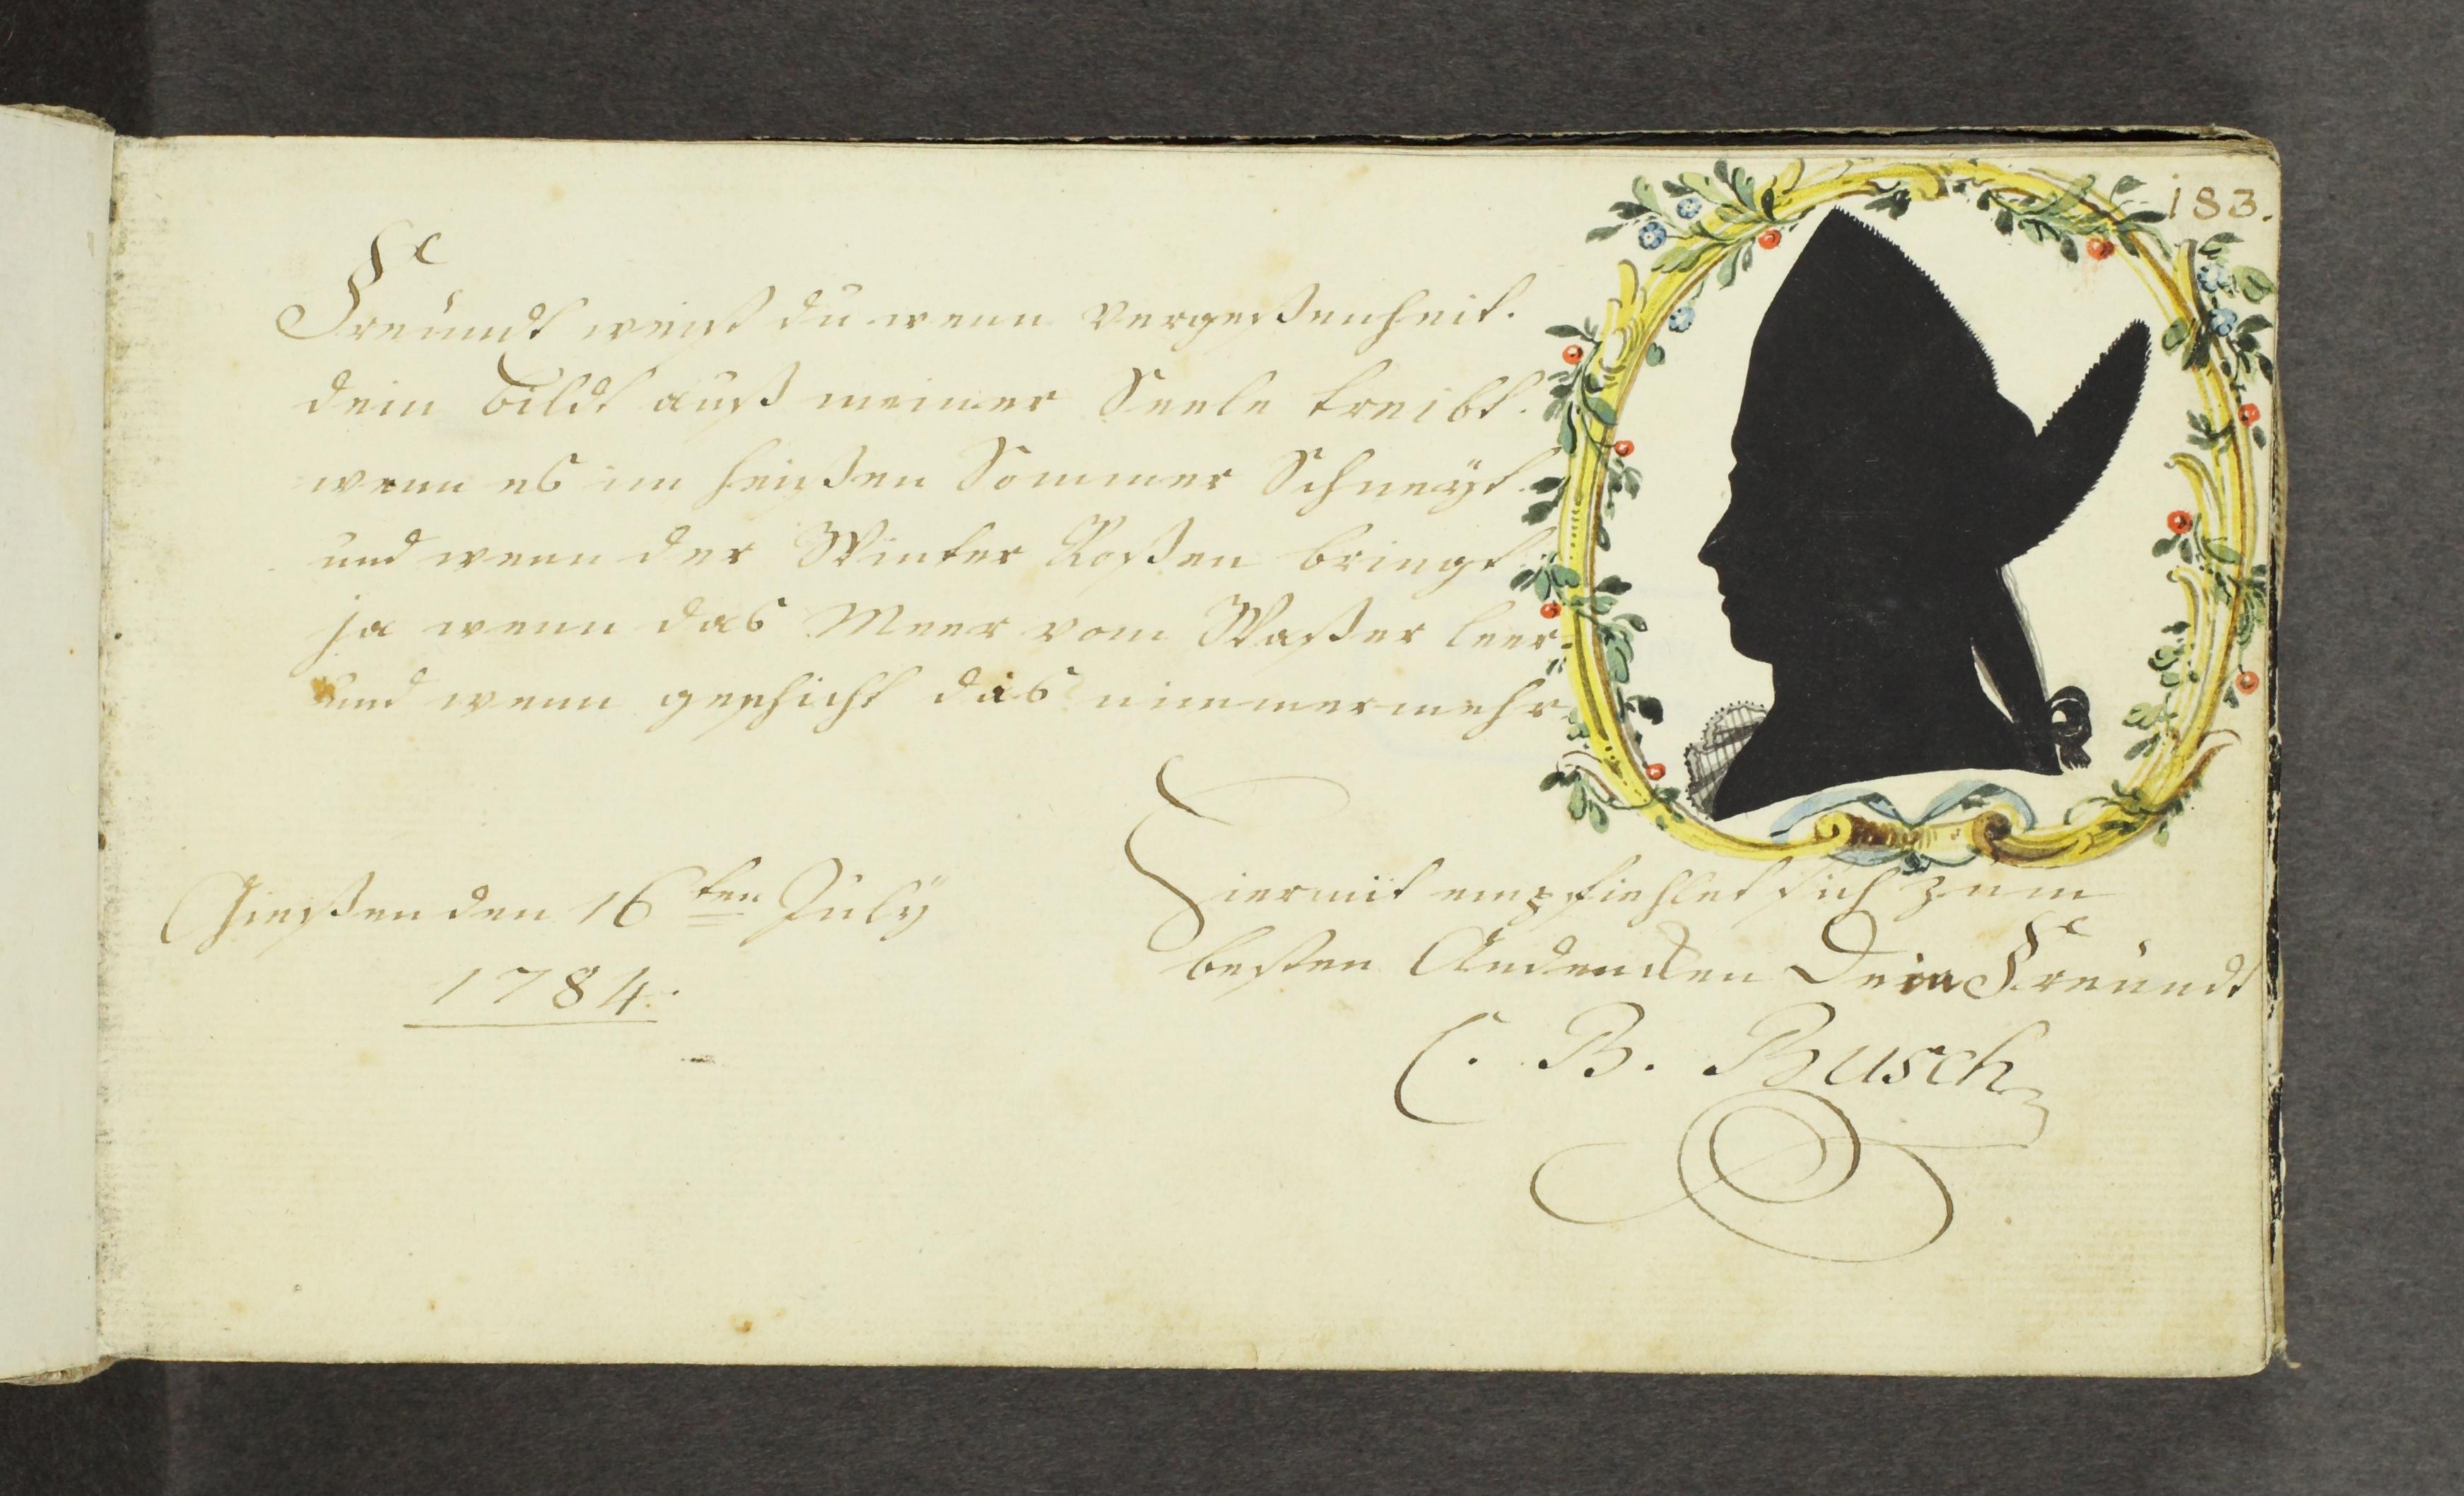 183.
Freündt weist du wenn vergeßenheit.
dein bildt auß meiner Seele treibt.
wenn es im heißen Sommer Schneÿt.
und wenn der Winter Roßen bringt.
ja wenn das Meer vom Waßer leer.
und wenn geschicht das nimmermehr.
Gießen den 16ten Julÿ
1784.
Hiermit empfiehlet sich zum
besten Andencken Dein Freündt
C. B. Busch